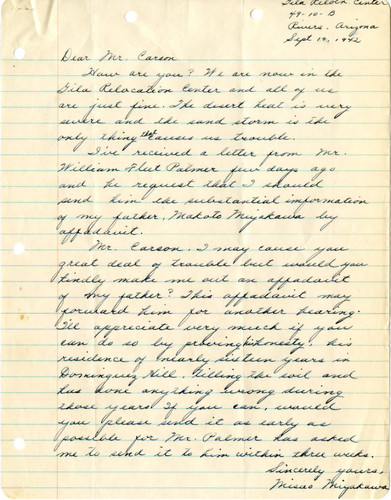 Gila Reloc. Center
49-10-B
Rivers, Arizona
Sept 19, 1942
Dear Mr. Carson
How are you? We are now in the
Gila Relocation Center and all of us
are just fine. The desert heat is very
severe and the sand storm is the
only thing that causes us trouble.
I've received a letter from Mr.
William Fleet Palmer few days ago
and he request that I should
send him the substantial information
of my father, Makoto Miyakawa by
affadavit.
Mr. Carson, I may cause you
great deal of trouble but would you
kindly make me out an affadavit
of my father? This affadavit may
forward him for another hearing.
I'll appreciate very much if you
can do so by proving honesty, his
residence of nearly sixteen years in
Dominguez Hill, tilling the soil and
has done anything wrong during
those years. If you can, would
you please send it as early as
possible for Mr. Palmer has asked
me to send it to him within three weeks.
Sincerely yours,
Misao Miyakawa